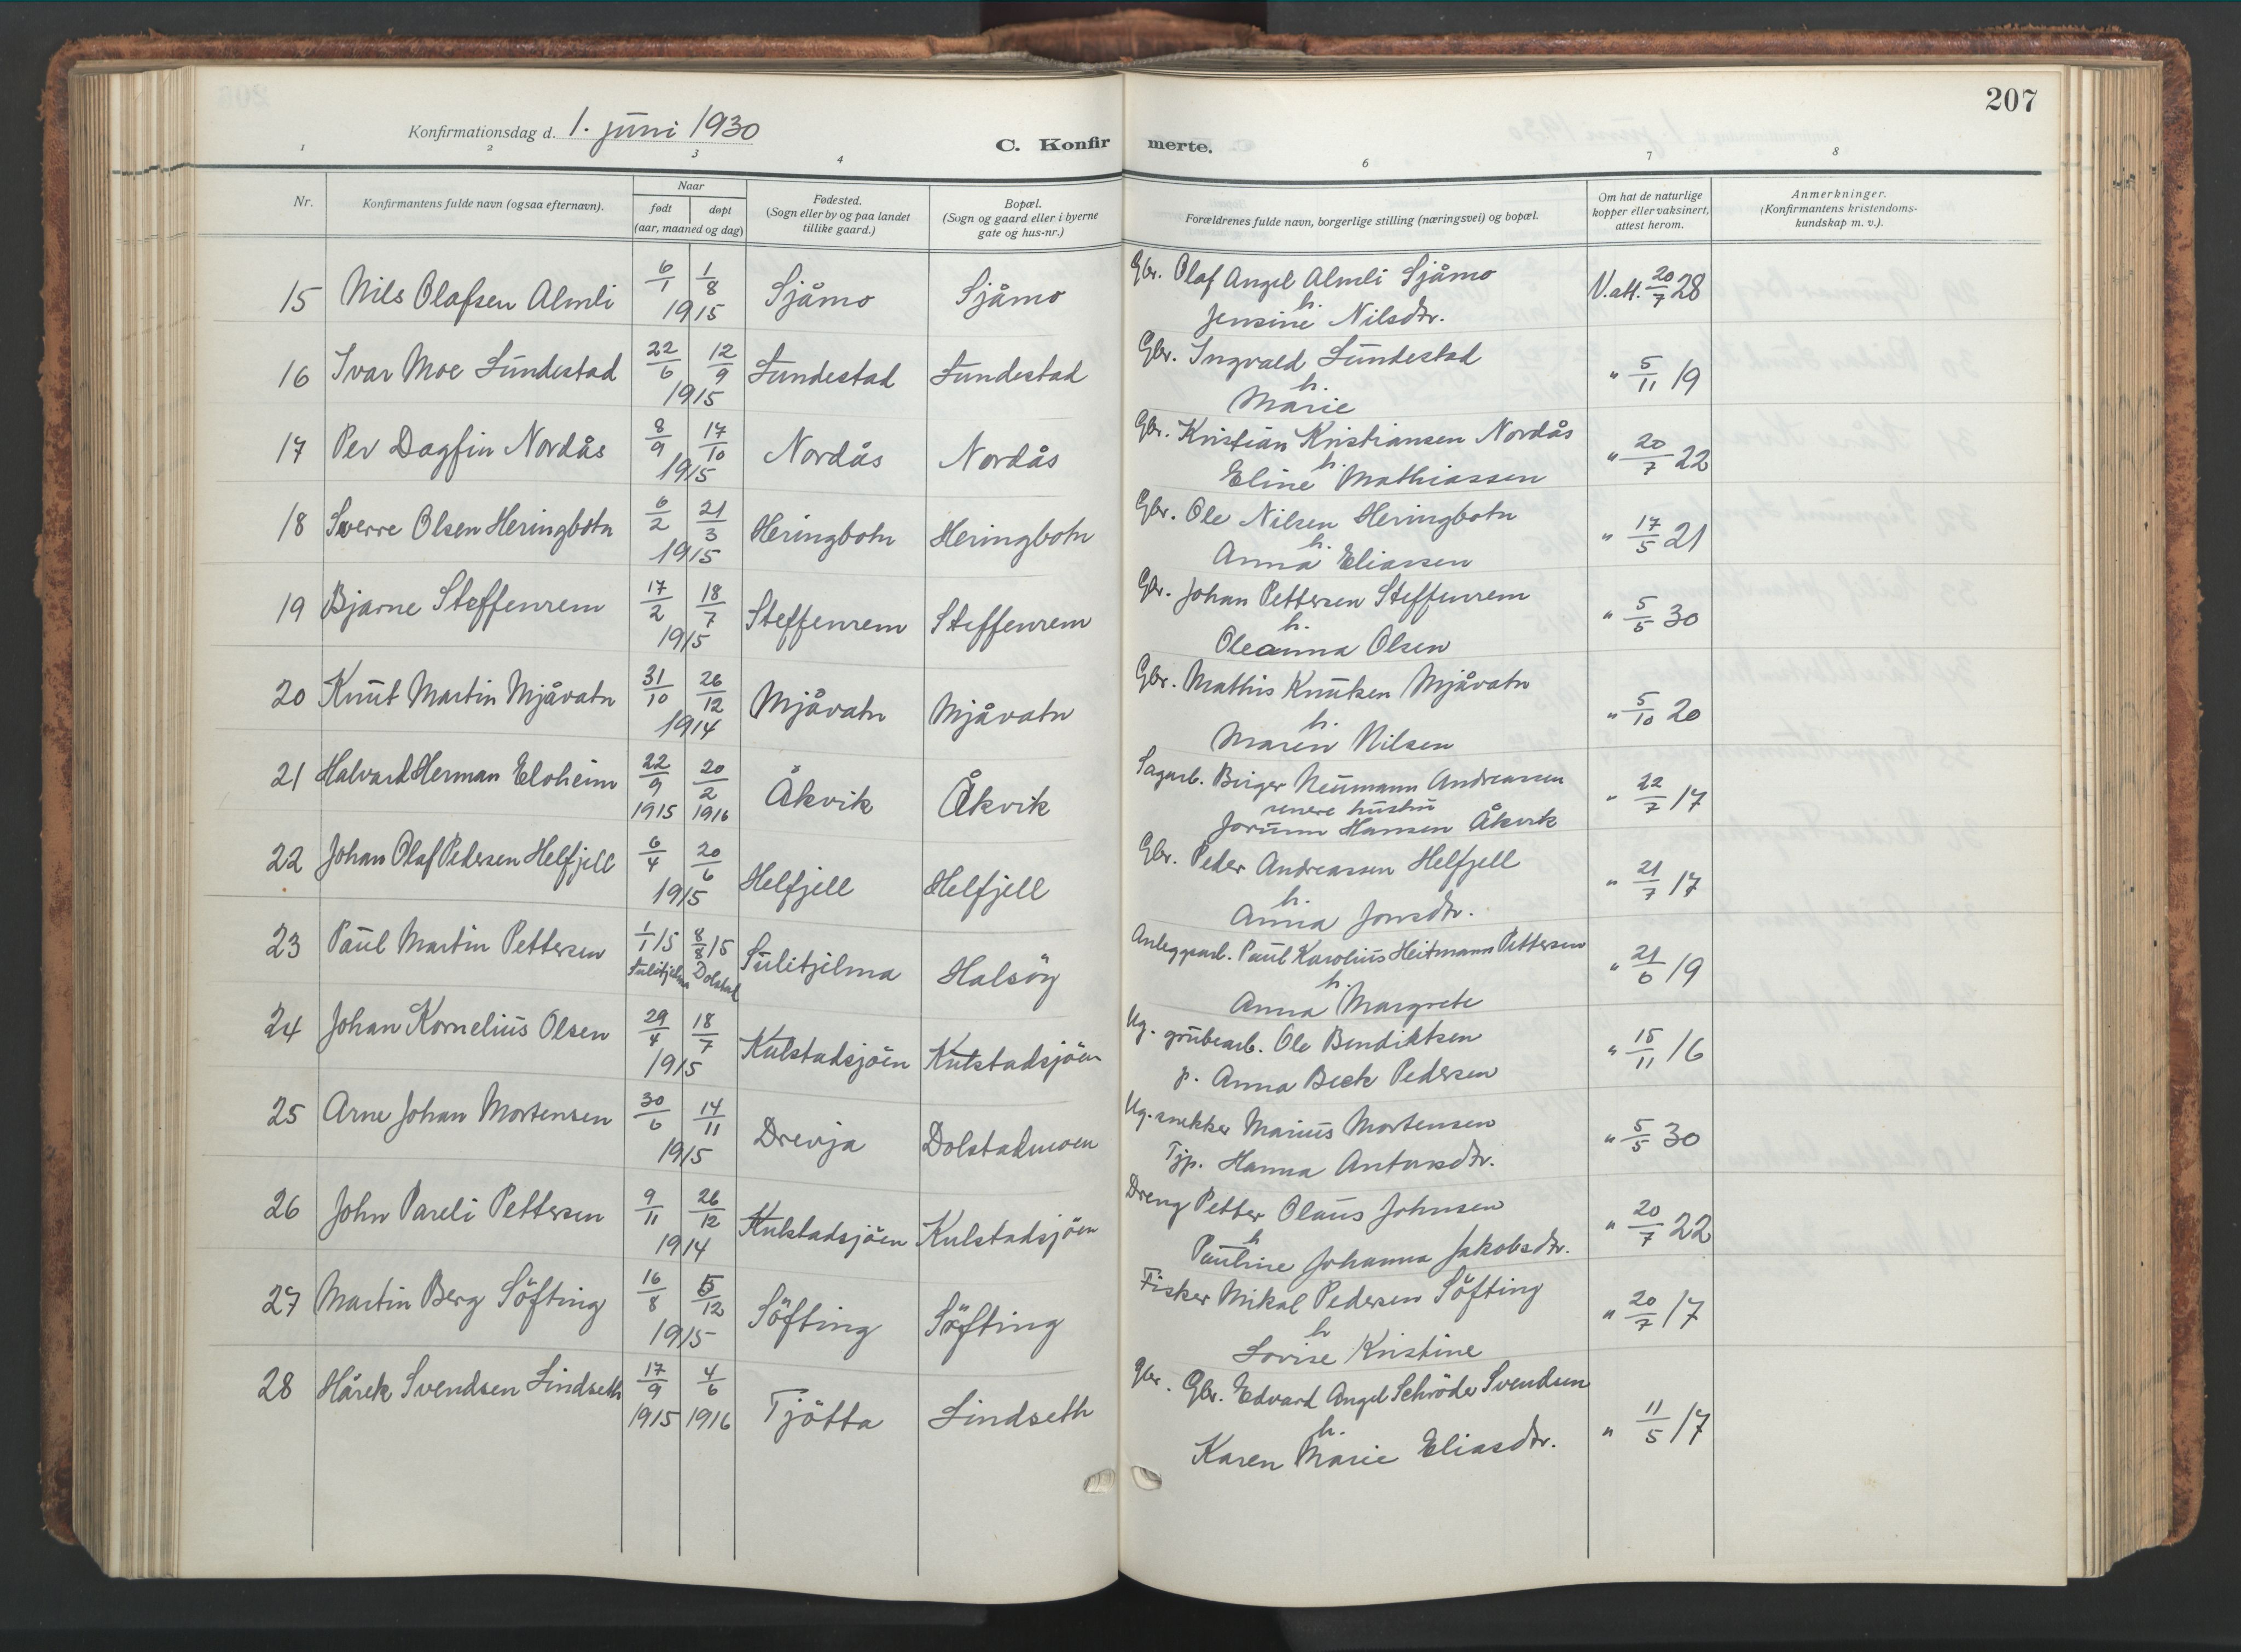 207
Konfirmationsdag d. 1. juni 1930
C. Konfirmerte.
1 2 3 4 6 7 8
Nr.
Konfirmantens fulde navn (ogsaa efternavn).
Naar
født døpt
(aar, maaned og dag)
Fødested.
(Sogn eller by og paa landet
tillike gaard.)
Bopæl.
(Sogn og gaard eller i byerne
gate og hus-nr.)
Forældrenes fulde navn, borgerlige stilling (næringsvei) og bopæl.
Om hat de naturlige
kopper eller vaksinert,
attest herom.
Anmerkninger.
(Konfirmantens kristendoms-
kundskap m. v.).
15 Nils Olafsen Almli 6/1 1/8 1915 Sjåmo Sjåmo Gbr. Olaf Angel Almli Sjåmo V.att. 20/7 28
h.
Jensine Nilsdtr.
16 Ivar Moe Lundestad 22/6 12/9 1915 Lundestad Lundestad Gbr. Ingvald Lundestad " 5/11 19
h.
Marie
17 Per Dagfin Nordås 8/9 17/10 1915 Nordås Nordås Gbr. Kristian Kristiansen Nordås " 20/7 22
h.
Eline Mathiassen
18 Sverre Olsen Heringbotn 6/2 21/3 1915 Heringbotn Heringbotn Gbr. Ole Nilsen Heringbotn " 17/5 21
h.
Anna Eliassen
19 Bjarne Steffenrem 17/2 18/7 1915 Steffenrem Steffenrem Gbr. Johan Pettersen Steffenrem " 5/5 30
h.
Oleanna Olsen
20 Knut Martin Mjåvatn 31/10 26/12 1914 Mjåvatn Mjåvatn Gbr. Mathis Knutsen Mjåvatn " 5/10 20
h.
Maren Nilsen
21 Halvard Herman Eloheim 22/9 1915 20/2 1916 Åkvik Åkvik Sagarb. Birger Neumann Andreassen " 22/7 17
senere hustru
Jorunn Hansen Åkvik
22 Johan Olaf Pedersen Helfjell 6/4 20/6 1915 Helfjell Helfjell Gbr. Peder Andreassen Helfjell " 21/7 17
h.
Anna Jonsdtr.
23 Paul Martin Pettersen 1/1 15 Sulitjelma 8/8 15 Dolstad Sulitjelma Halsöy Anleggsarb. Paul Karolius Heitmann Pettersen " 21/6 19
h.
Anna Margrete
24 Johan Kornelius Olsen 29/4 18/7 1915 Kulstadsjöen Kulstadsjöen Ug. grubearb. Ole Bendiktsen " 15/11 16
p. Anna Beck Pedersen
25 Arne Johan Mortensen 30/6 14/11 1915 Drevja Dolstadmoen Ug. snekker Marius Mortensen " 5/5 30
Tjp. Hanna Antonsdtr.
26 John Pareli Pettersen 9/11 26/12 1914 Kulstadsjöen Kulstadsjöen Dreng Petter Olaus Johnsen " 20/7 22
h
Pauline Johanna Jakobsdtr.
27 Martin Berg Söfting 16/8 5/12 1915 Söfting Söfting Fisker Mikal Pedersen Söfting " 20/7 17
h
Lovise Kristine
28 Hårek Svendsen Lindseth 17/9 1915 4/6 1916 Tjötta Lindseth Gbr. Gbr. Edvard Angel Schröder Svendsen " 11/5 17
h.
Karen Marie Eliasdtr.